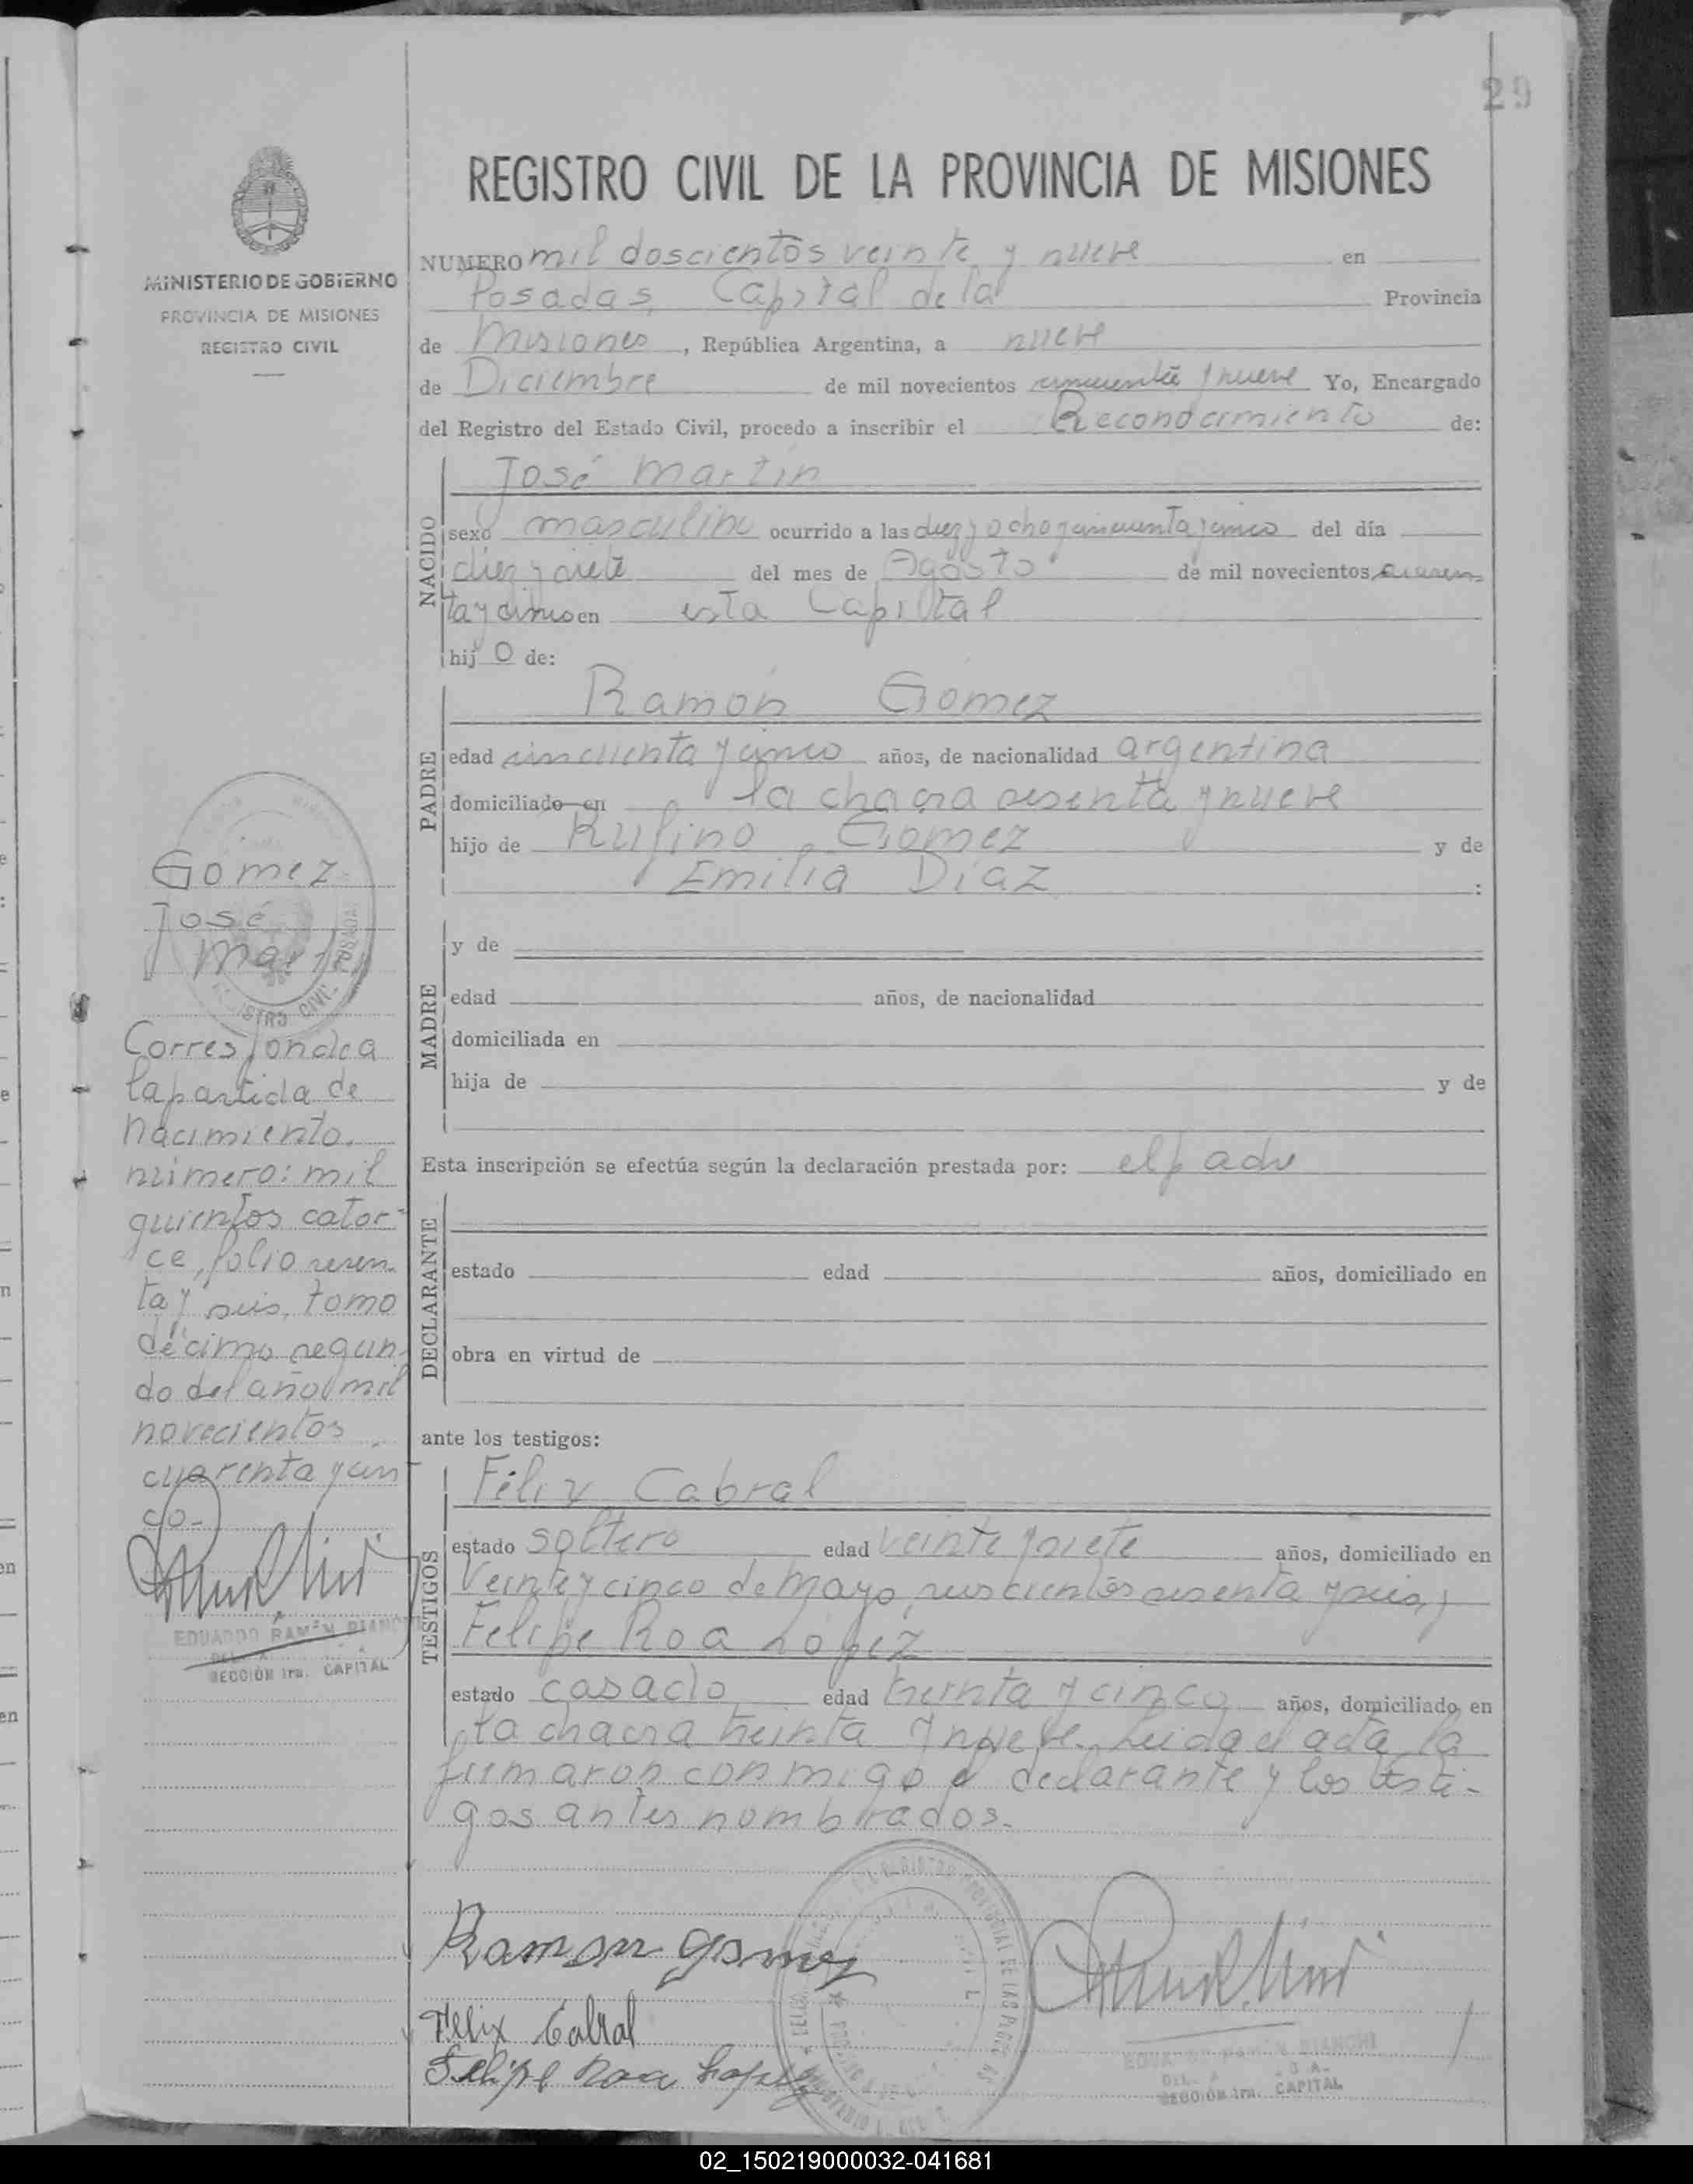 29
MINISTERIO DE GOBIERNO
PROVINCIA DE MISIONES
REGISTRO CIVIL
REGISTRO CIVIL DE LA PROVINCIA DE MISIONES
NUMERO mil doscientos veinte y nueve en
Posadas, Capital de la Provincia
de Misiones, República Argentina, a nueve
de Diciembre de mil novecientos cincuenta y nueve Yo, Encargado
del Registro del Estado Civil, procedo a inscribir el Reconocimiento de:
NACIDO
José Martin
sexo masculino ocurrido a las diez y ocho y cincuenta y cinco del día
diez y siete del mes de Agosto de mil novecientos cuaren
ta y cinco en esta Capital
hijo de:
PADRE
Ramón Gomez
edad cincuenta y cinco años, de nacionalidad argentina
domiciliado en la chacra sesenta y nueve
hijo de Rufino Gomez y de
Emilia Diaz :
MADRE
y de
edad años, de nacionalidad
domiciliada en
hija de y de
Esta inscripción se efectúa según la declaración prestada por: el padre
DECLARANTE
estado edad años, domiciliado en
obra en virtud de
ante los testigos:
TESTIGOS
Félix Cabral
estado soltero edad veinte y siete años, domiciliado en
Veinte y cinco de Mayo, seiscientos sesenta y seis, y
Felipe Roa Lopez
estado casado edad treinta y cinco años, domiciliado en
la chacra treinta y nueve. Leida el acta la
firmaron conmigo el declarante y los testi-
gos antes nombrados.-
Gomez
José
Martin
Corresponde a
la partida de
nacimiento.
número: mil
quientos cator-
ce, folio sesen-
ta y seis, tomo
décimo segun-
do del año mil
novecientos
cuarenta y cin
co.-
EDUARDO RAMÓN BIANCHI
SECCIÓN 1ra. CAPITAL
Ramon Gomez
Felix Cabral
Felipe Roa Lopez
EDUARDO RAMÓN BIANCHI
SECCIÓN 1ra. CAPITAL
02_150219000032-041681